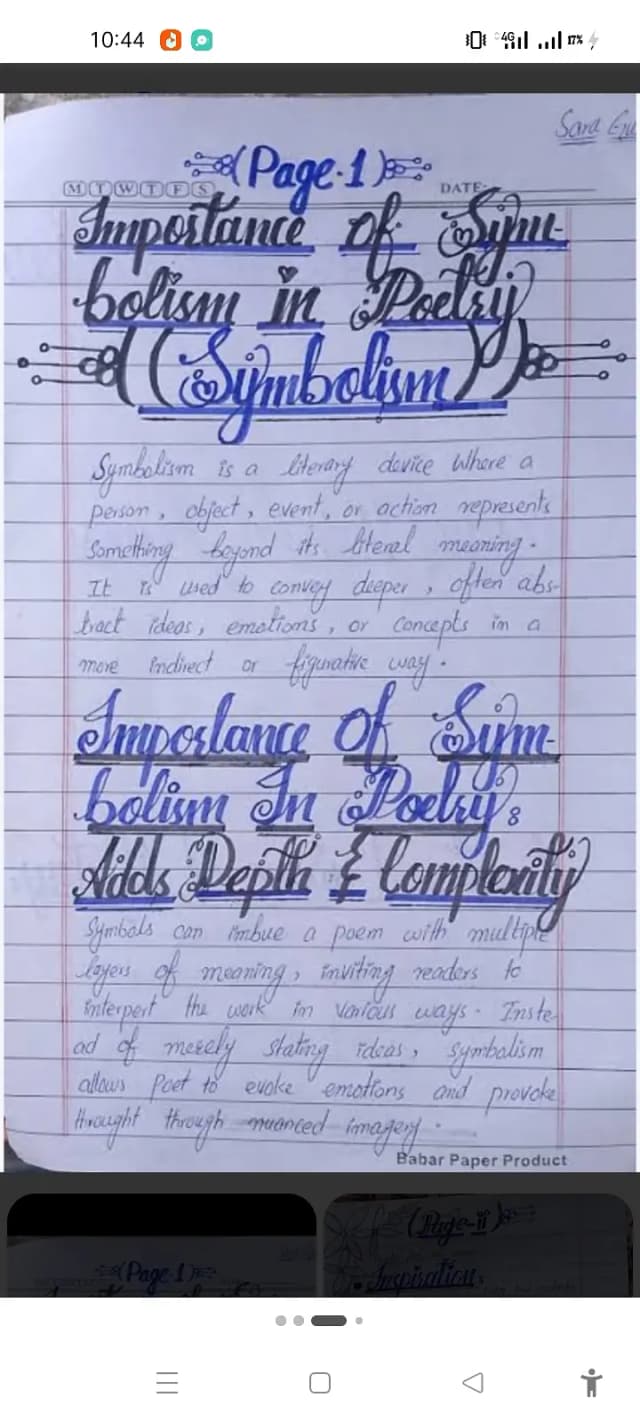 10:44
4G
17%
Sara
(Page-1)
M T W T F S
DATE:
Importance of Sym-
bolism in Poetry
((Symbolism))
Symbolism is a literary device Where a
person, object, event, or action represents
Something beyond its literal meaning.
It is used to convey deeper, often abs-
tract ideas, emotions, or Concepts in a
more indirect or figurative way.
Importance Of Sym-
bolism In Poetry:
Adds Depth & Complexity
Symbols can imbue a poem with multiple
layers of meaning, inviting readers to
interpert the work in various ways. Inste-
ad of merely stating ideas, symbolism
allows Poet to evoke emotions and provoke
throught through nuanced imagery.
Babar Paper Product
(Page-1)
(Page-ii)
Inspiration: